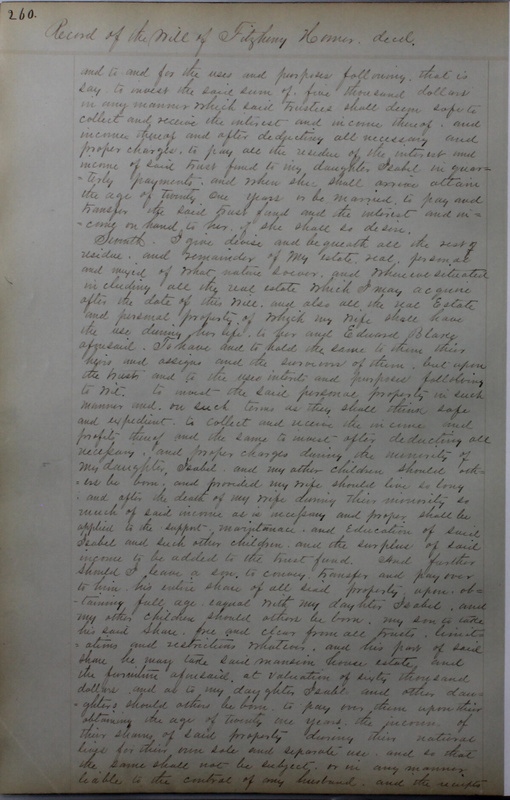 260.
Record of the Will of Fitzhenry Homer. decd.
and to and for the uses and purposes following, that is
say to invest the said sum of five thousand dollars
in any manner which said trustees shall deem safe to
collect and receive the interest and income thereof. and
income thereof and after deducting all necessary and
proper charges. to pay all the residue of the interest and
income of said trust fund to my daughter Isabel in quar=
=terly payments. and when she shall arrive attain
the age of twenty one years or be married, to pay and
transfer the said trust fund and the interest and in=
=come on hand to her. if she shall so desire.
Seventh. I give devise and bequeath all the rest &
residue. and remainder of my estate, real, personal
and mixed of what nature soever. and wherever situated
including all the real estate which I may acquire
after the date of this Will. and also all the real Estate
and personal property, of which my wife shall have
the use during her life. to her and Edward Blake
aforesaid. To have and to hold the same to them their
heirs and assigns and the survivor of them. but upon
the trusts and to the uses intents and purposes following
to wit. to invest the said personal property in such
manner and. on such terms as they shall think safe
and expedient. to collect and receive the income and
profits thereof and the same to invest after deducting all
necessary. and proper charges during the minority of
my daughter, Isabel. and my other children should oth=
=ers be born. and provided my wife should live so long
and after the death of my wife during their minority so
much of said income as is necessary and proper shall be
applied to the support, maintenance and Education of said
Isabel and such other children. and the surplus of said
income to be added to the trust fund. And further
should I leave a son, to convey, transfer and pay over
to him his entire share of all said property upon. ob=
=taining full age. equal with my daughter Isabel. and
my other children should others be born. my son to take
his said share. free and clear from all trusts. limit=
=ations and restrictions whatever. and his part of said
share he may take said mansion house estate, and
the furniture aforesaid, at valuation of sixty thousand
dollars. and as to my daughter Isabel and other dau=
=ghters should others be born. to pay over them upon their
obtaining the age of twenty one years. the income. of
their shares of said property during their natural
lives for their own sole and separate use. and so that
the same shall not be subject. or in any manner
liable to the control of any husband. and the receipts